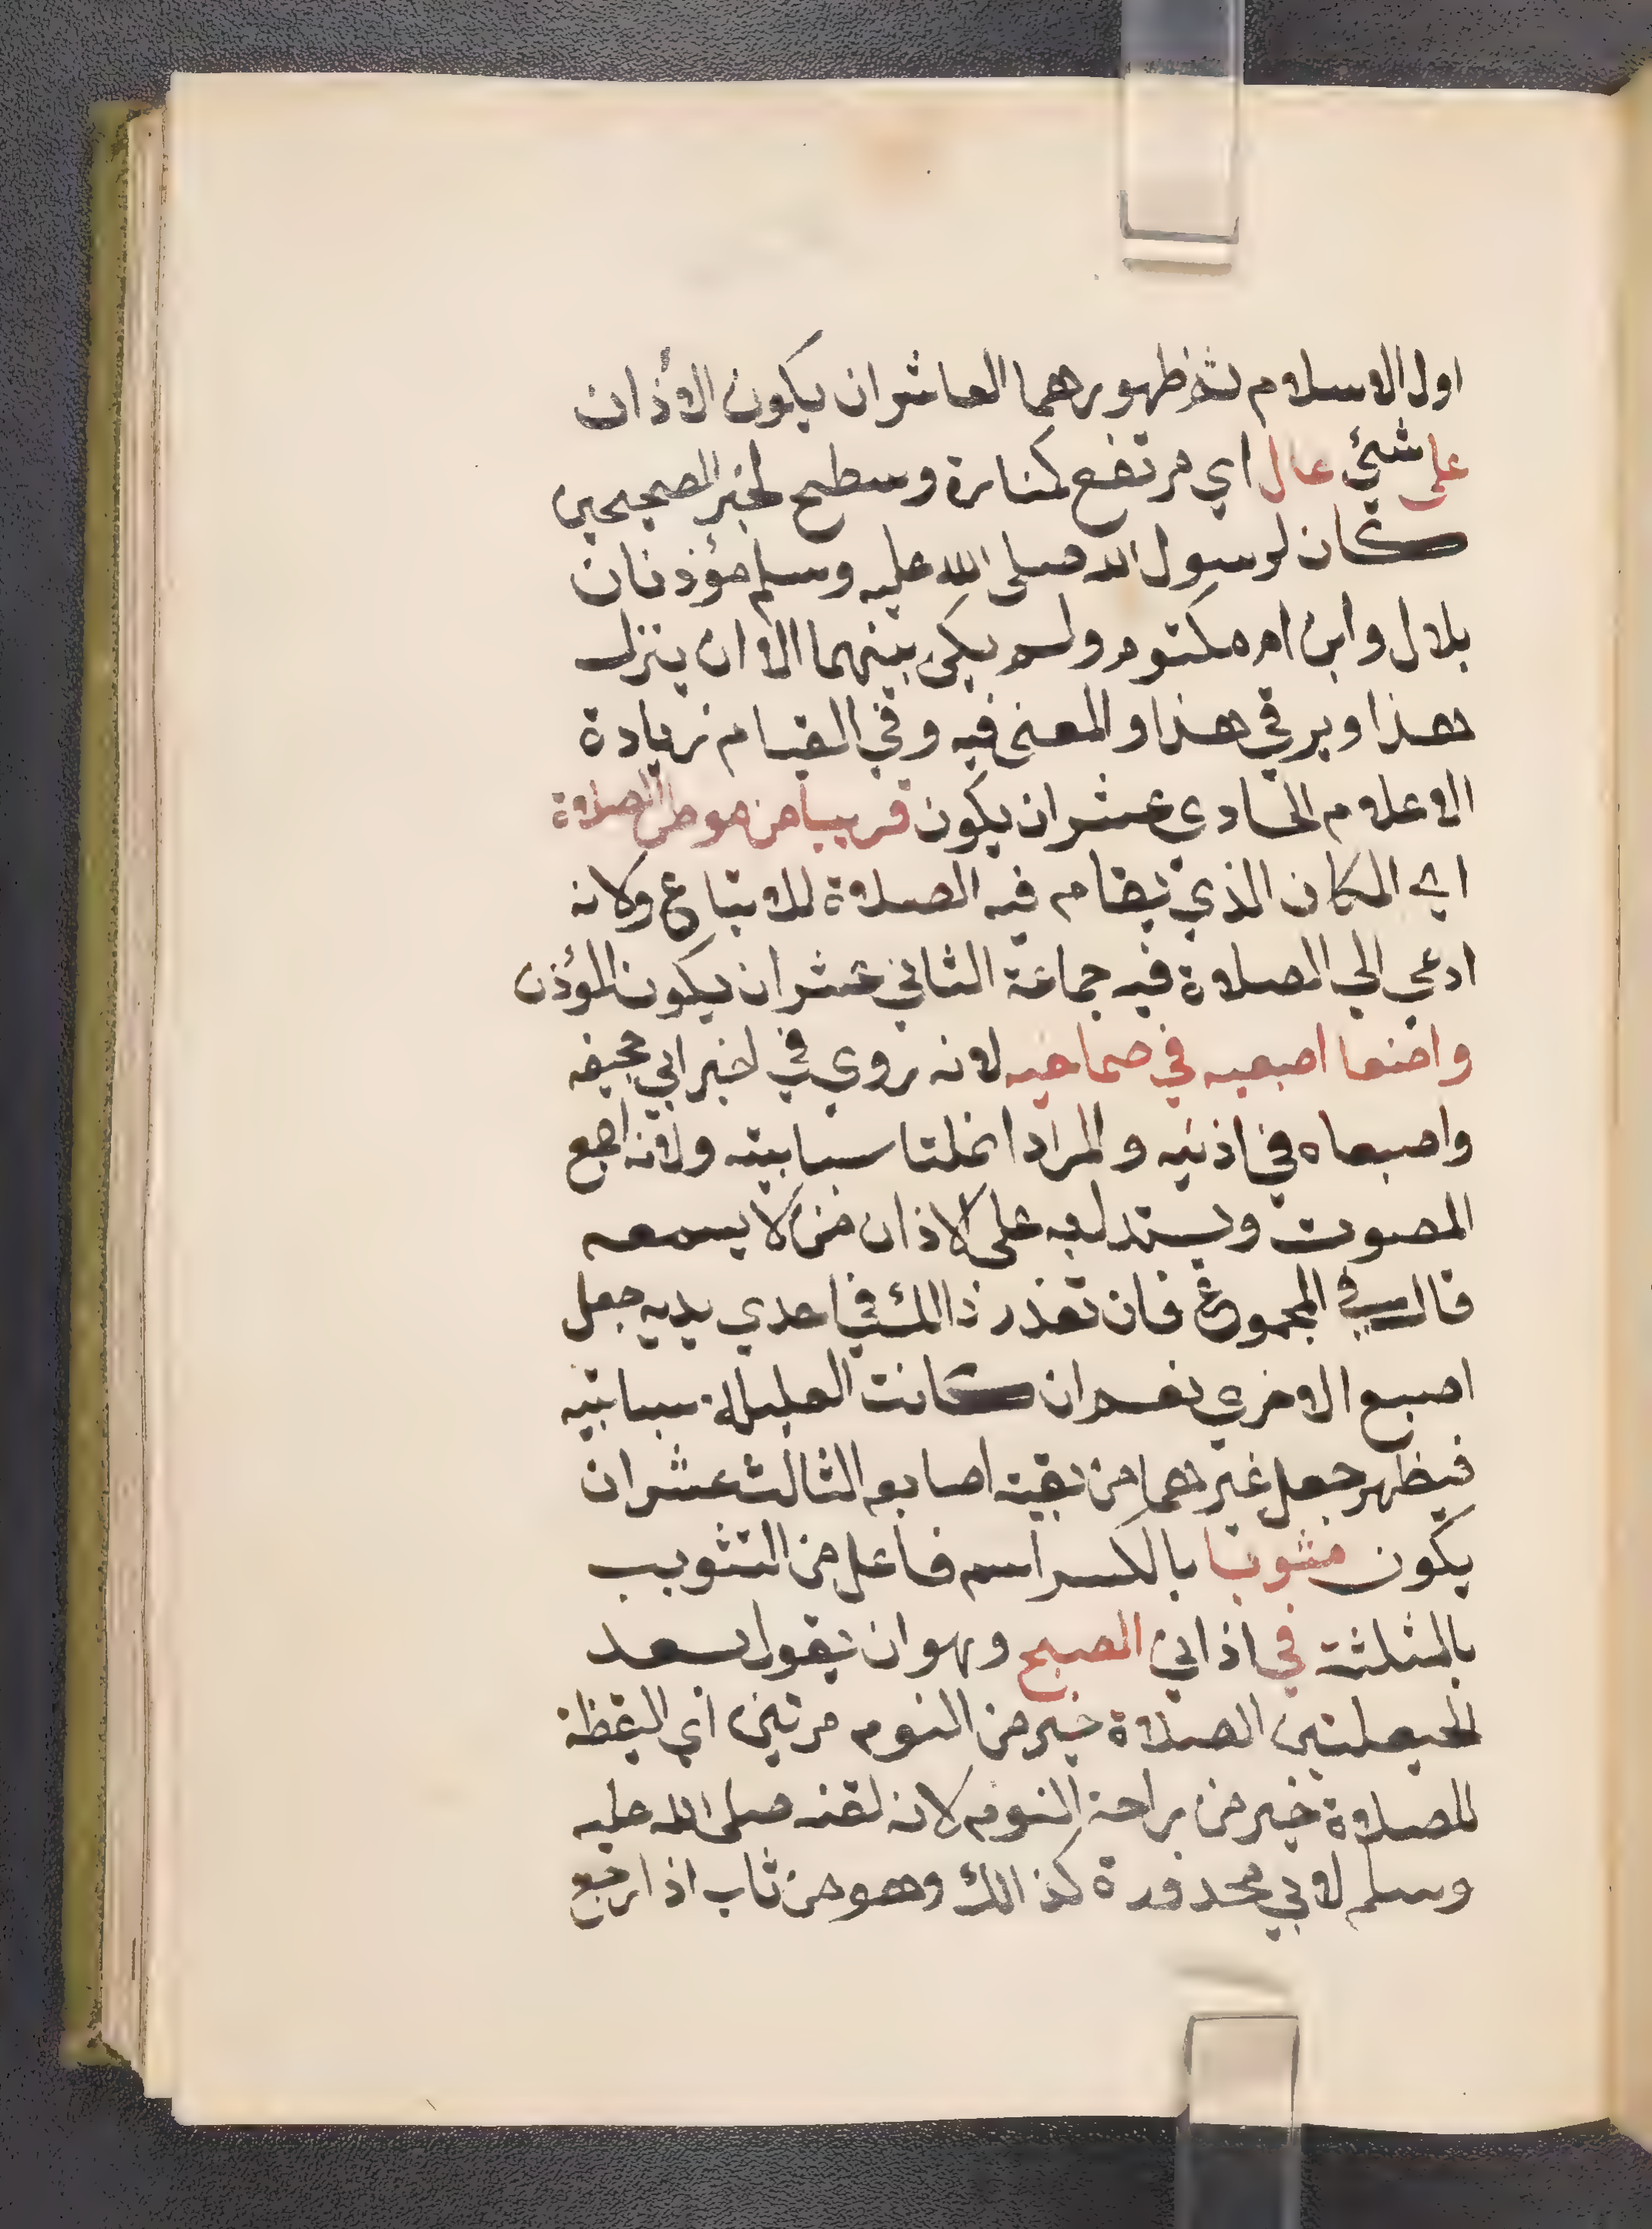 اول الاسلام ثم ظهورهما العاشر ان يكون الأذان
على شئي عال اي مرتفع كمنارة وسطح لخبر الصحيحين
كان لرسول الله صلى الله عليه وسلم مؤذنان
بلال وابن ام مكتوم ولم يكن بينهما الا ان ينزل
هذا ويرقي هذا والمعنى فيه وفي القيام زيادة
الاعلام الحادي عشر ان يكون قريبا من موطن الصلاة
اي المكان الذي تقام فيه الصلاة للاتباع وكانه
ادعي الي الصلاة فيه جماعة الثاني عشر ان يكون المؤذن
واضعا اصبعيه في صماخيه لانه روي في خبر ابي جحيفه
واصبعاه في اذنيه والمراد انملتا سبابيته ولانه اجمع
الصوت ويستدل به على الاذان من لا يسمعه
قال في المجموع فان تعذر ذالك في احدي يديه جعل
اصبع الاخري نعم ان كانت العليلة سبابتيه
فيظهر جعل غيرهما من بقية اصابعه الثالث عشر ان
يكون مثوبا بالكسر اسم فاعل من التثويب
بالمثلثة في اذاني الصبح وهو ان يقول بعد
الحيعلتين الصلاة خير من النوم مرتين اي اليقظة
للصلاة خير من راحة النوم لانه لقنه صلى الله عليه
وسلم لابي محذورة كذالك وهو من ثاب اذا رجع